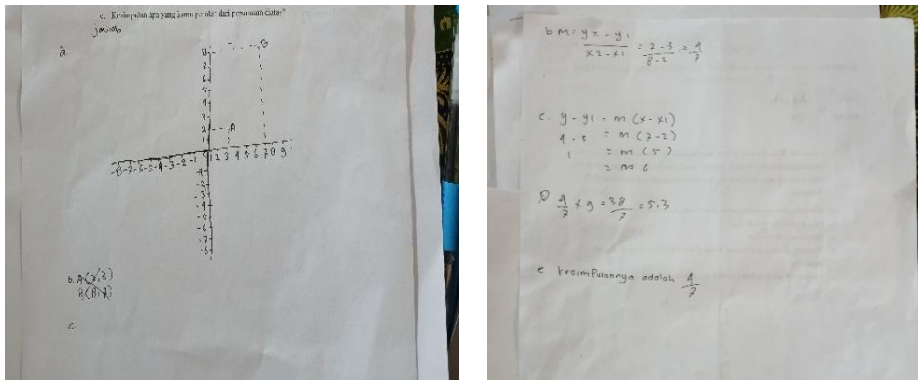 e. Kesimpulan apa yang kamu peroleh dari persamaan diatas?
jawab
a.
8 B
7
6
5
4
3
2 A
1
-8 -7 -6 -5 -4 -3 -2 -1 0 1 2 3 4 5 6 7 8 9
-1
-2
-3
-4
-5
-6
-7
-8
b. A
B
c.
b M = y2 - y1
x2 - x1 = 7 - 3
8 - 2 = 4
7
c. y - y1 = m (x - x1)
4 - 3 = m (7 - 2)
1 = m (5)
= m 6
D 4
7 x 9 = 38
7 = 5,3
e kesimpulannya adalah 4
7